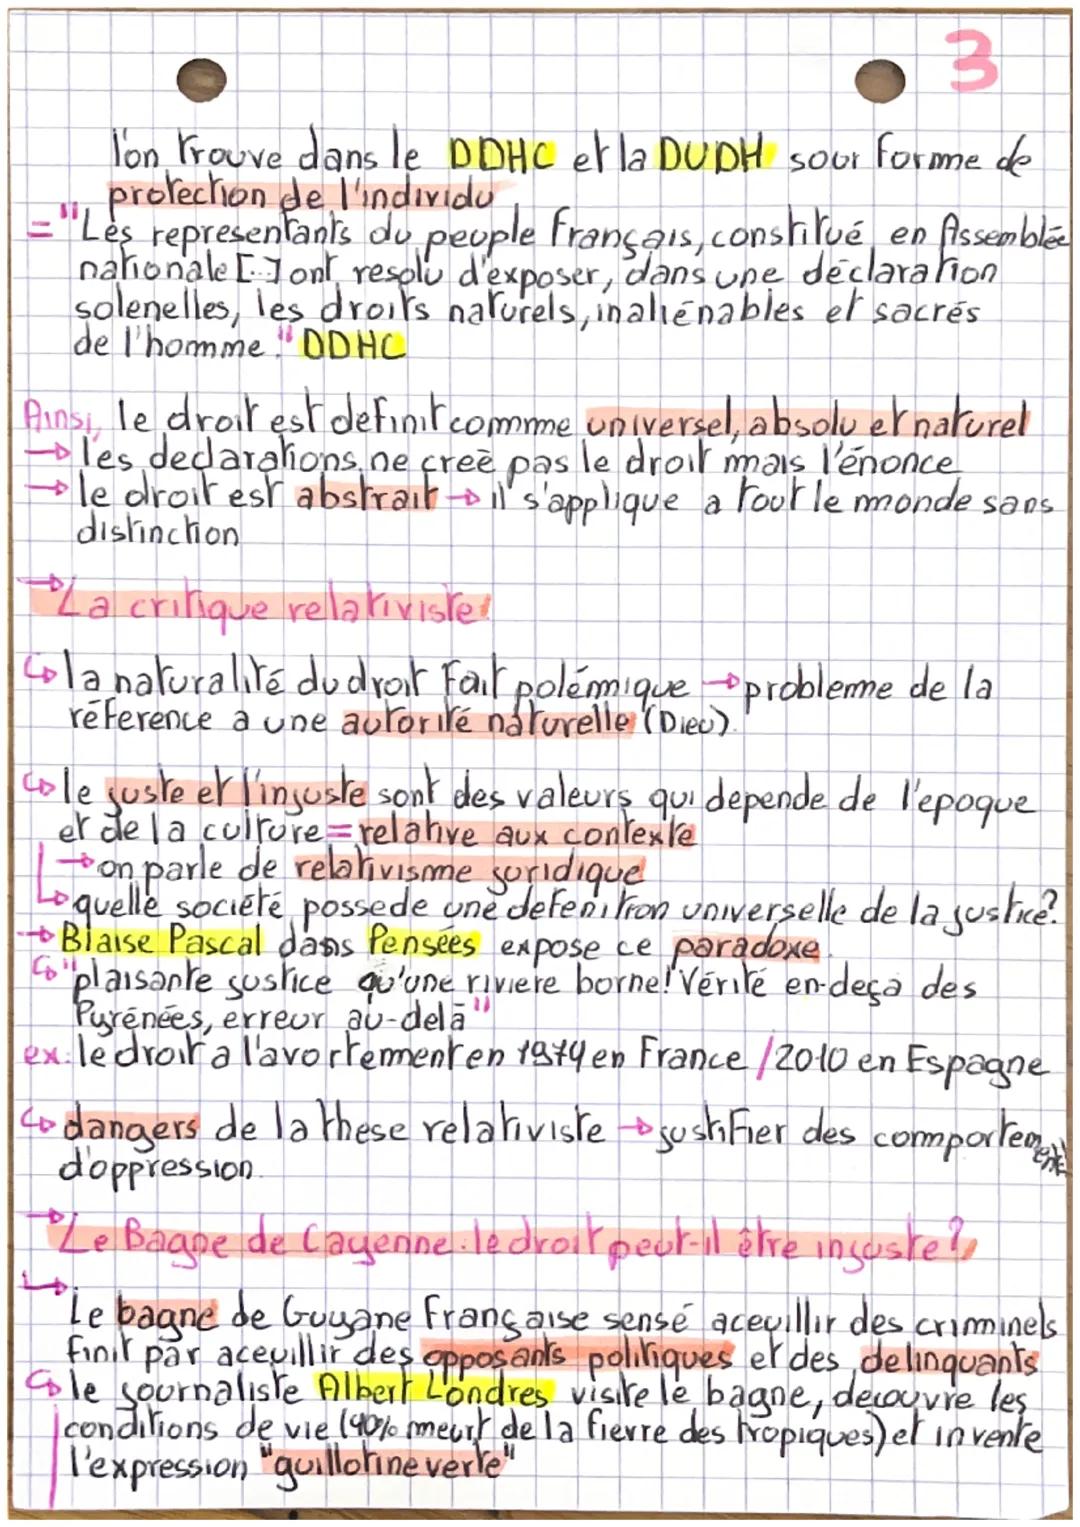 3
l'on trouve dans le DDHC et la DUDH sour forme de
protection de l'individu
= "Les representants du peuple français, constitué en Assemblée
nationale [...] ont resolu d'exposer, dans une déclaration
solenelles, les droits naturels, inaliénables et sacrés
de l'homme." DDHC
Ainsi, le droit est definit commme universel, absolu et naturel
→ les declarations ne creè pas le droit mais l'énonce
→ le droit est abstrait → il s'applique a tout le monde sans
distinction
→ La critique relativiste:
↳ la naturalité du droit fait polémique → probleme de la
réference a une autorité naturelle (Dieu).
↳ le juste et l'injuste sont des valeurs qui depende de l'epoque
et de la culture = relative aux contexte
→ on parle de relativisme juridique
↳ quelle société possede une defenition universelle de la justice?
→ Blaise Pascal dans Pensées expose ce paradoxe.
↳ "plaisante justice qu'une riviere borne! Vérité en-deça des
Pyrénées, erreur au-delà"
ex: le droit a l'avortement en 1974 en France / 2010 en Espagne
↳ dangers de la these relativiste → justifier des comportements
d'oppression.
→ Le Bagne de Cayenne: le droit peut-il être injuste?
↳ Le bagne de Guyane Française sensé aceuillir des criminels
finit par aceuillir des opposants politiques et des delinquants
↳ le journaliste Albert Londres visite le bagne, decouvre les
conditions de vie (40% meurt de la fievre des tropiques) et invente
l'expression "guillotine verte"